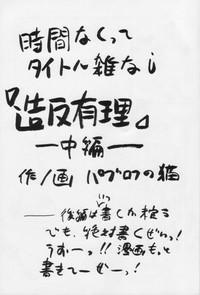 時間なくって
タイトル雑なし
『造反有理』
―中編―
作/画 パブロフの猫
いつ
――後編は書くか枕う
でも、絶対書くぜいっ!
うおーっ!!漫画もっと
書きてーぜーっ!